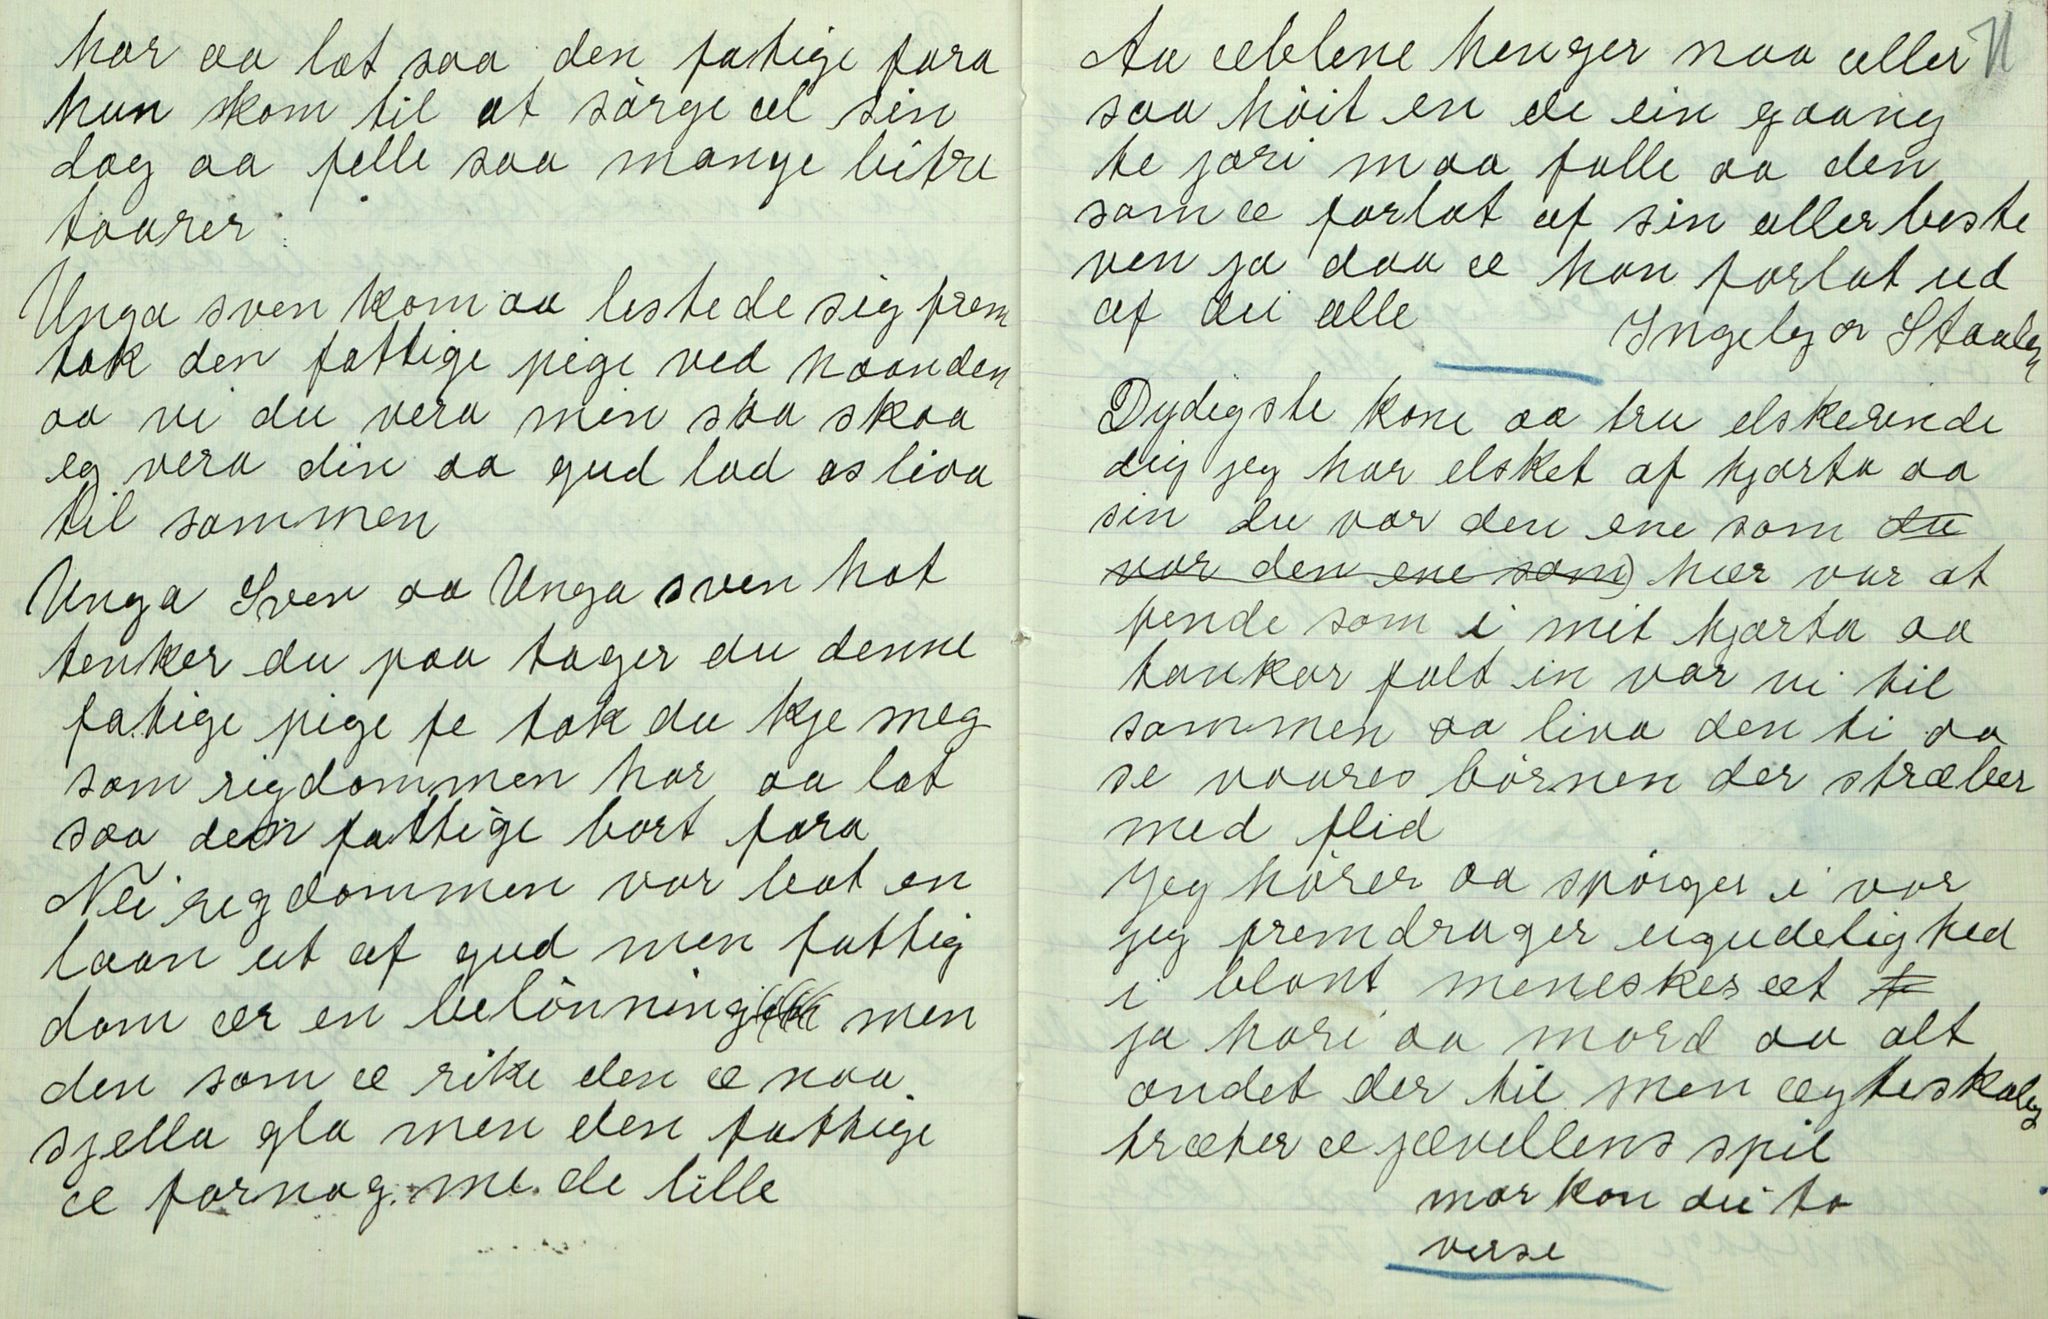 har aa lot saa den fattige fara
hun skom til at sörge al sin
dag aa felle saa mange bitre
taarer
Unga sven kom aa lestede sig frem
tok den fattige pige ved haanden
aa vi du vera min saa skaa
eg vera din aa gud lad os liva
til sammen
Unga Sven aa Unga sven hot
tenker du paa tager du denne
fatige pige fe tok du kje meg
som rigdommen har aa lat
saa den fattige bort fara
Nei rigdommen var bat en
laan ut af gud men fattig
dom ær en belönning men
den som æ rike den æ naa
sjella gla men den fattige
æ fornøg me de lille
Aa æblene henger naa aller
saa höit en de ein gaang
te jori maa falle aa den
som æ forlat af sin aller beste
ven ja daa æ han forlat ud
af dei alle
Ingebgor Staaley
Dydigste kone aa tru elskerinde
dig jeg har elsket af hjarta aa
sin du var den ene som du
var den ene som) hær var at
finde som i mit hjarta aa
tankar falt in var vi til
sammen aa liva den ti aa
se vaares börnen der stræber
med flid
Jeg hörer aa spörger i vor
jeg fremdrager ugudelighed
i blant meneskes æt
ja hori aa mord aa alt
andet der til men ægteskaleg
træter æ jævellens spil
mor kon dei to
verse